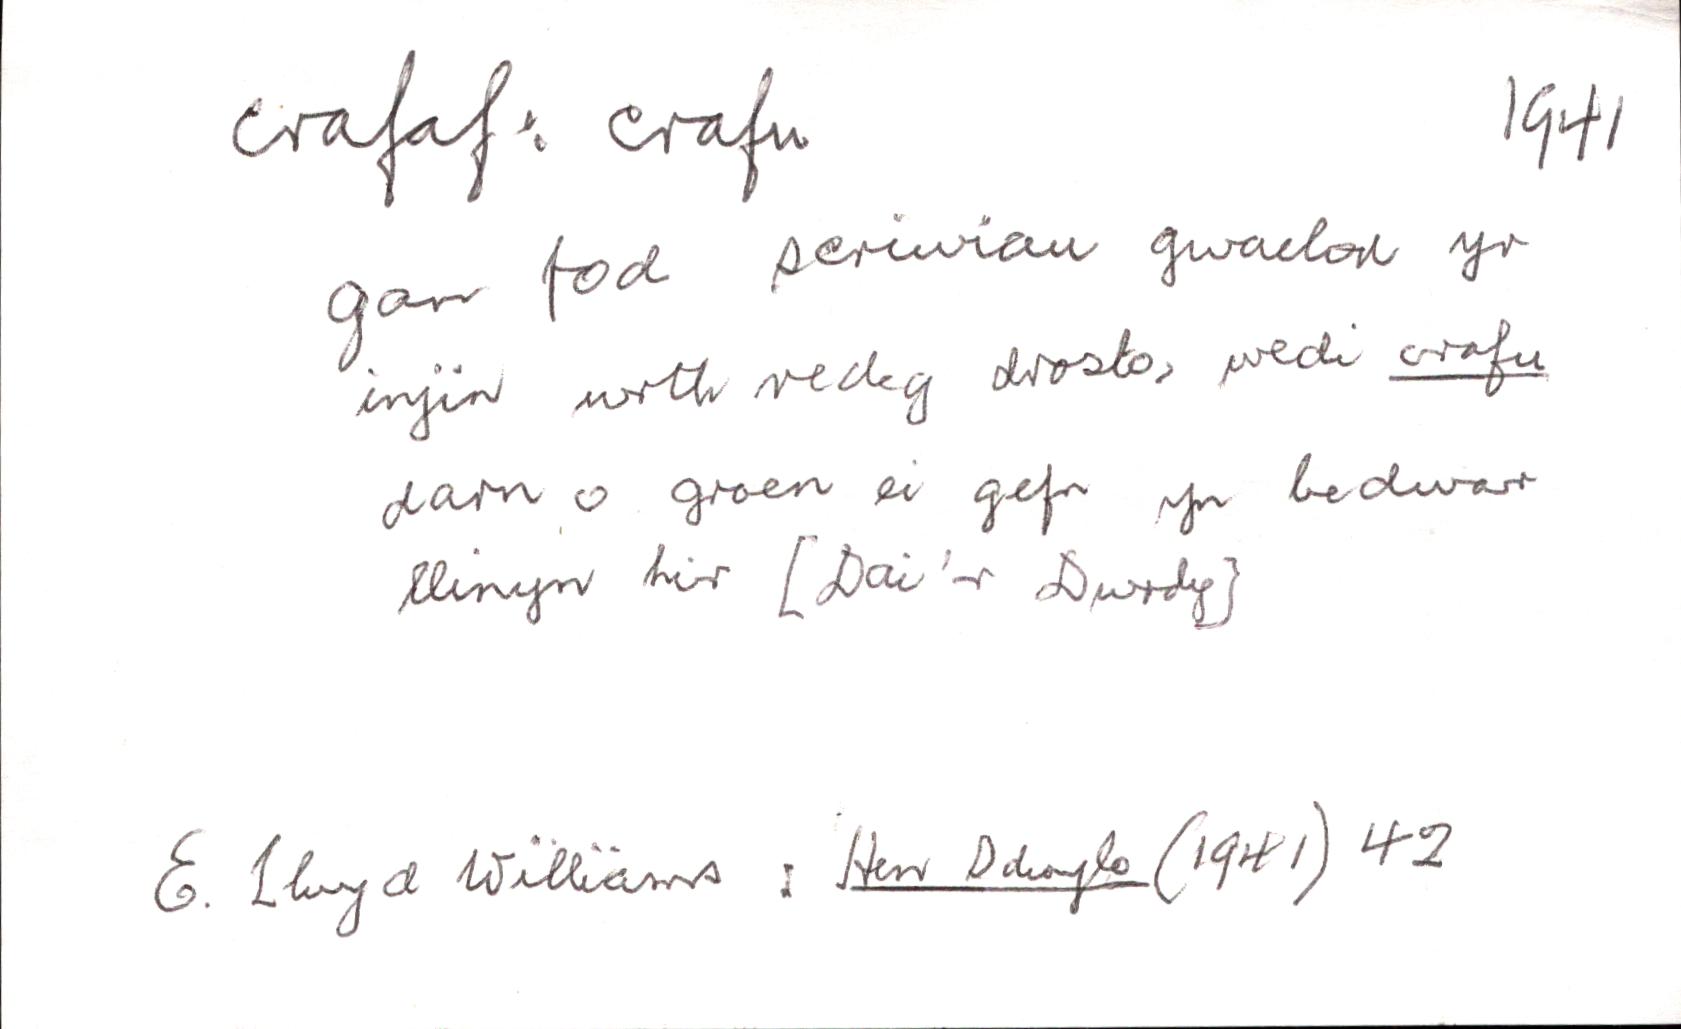 crafaf: crafu 1941
gan fod scriwiau gwaelod yr
injin wrth redeg drosto, wedi crafu
darn o groen ei gefn yn bedwar
llinyn hir [Dai'r Dwrdy]
E. Llwyd Williams: Hen Ddwylo (1941) 42